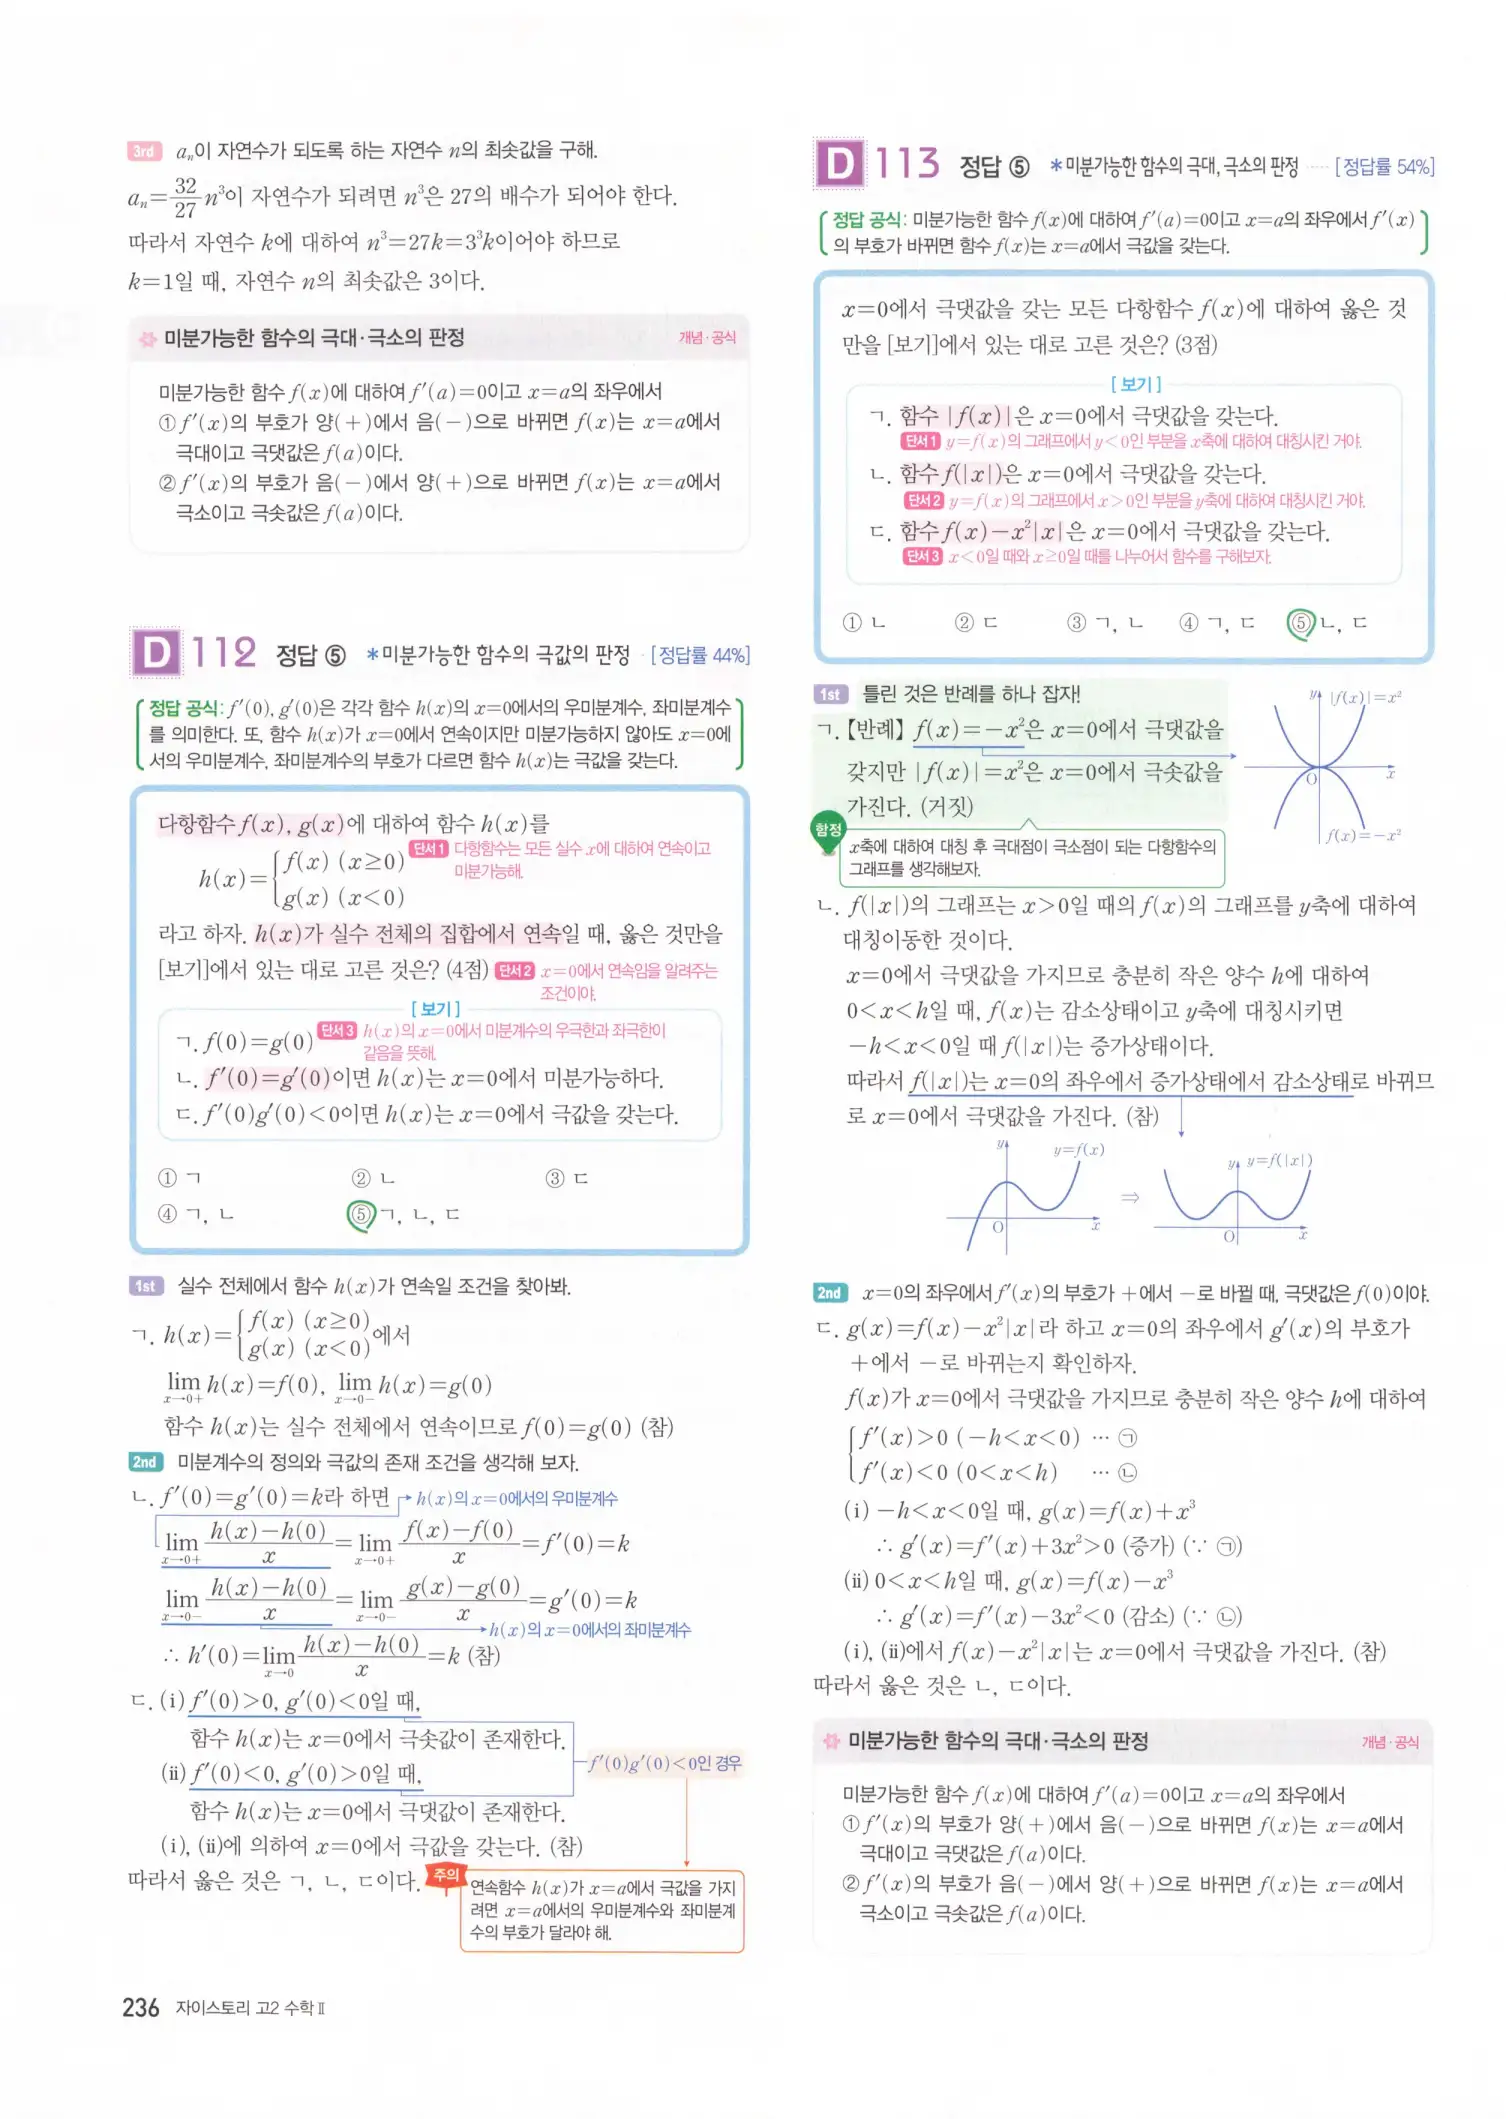 3rd aₙ이 자연수가 되도록 하는 자연수 n의 최솟값을 구해.
aₙ=32/27 n³이 자연수가 되려면 n³은 27의 배수가 되어야 한다.
따라서 자연수 k에 대하여 n³=27k=3³k이어야 하므로
k=1일 때, 자연수 n의 최솟값은 3이다.
미분가능한 함수의 극대·극소의 판정 개념·공식
미분가능한 함수 f(x)에 대하여 f′(a)=0이고 x=a의 좌우에서
① f′(x)의 부호가 양(+)에서 음(-)으로 바뀌면 f(x)는 x=a에서
극대이고 극댓값은 f(a)이다.
② f′(x)의 부호가 음(-)에서 양(+)으로 바뀌면 f(x)는 x=a에서
극소이고 극솟값은 f(a)이다.
D 112 정답 ⑤ *미분가능한 함수의 극값의 판정 [정답률 44%]
정답 공식: f′(0), g′(0)은 각각 함수 h(x)의 x=0에서의 우미분계수, 좌미분계수
를 의미한다. 또, 함수 h(x)가 x=0에서 연속이지만 미분가능하지 않아도 x=0에
서의 우미분계수, 좌미분계수의 부호가 다르면 함수 h(x)는 극값을 갖는다.
다항함수 f(x), g(x)에 대하여 함수 h(x)를
단서1 다항함수는 모든 실수 x에 대하여 연속이고
미분가능해.
h(x)={f(x) (x≥0)
g(x) (x<0)
라고 하자. h(x)가 실수 전체의 집합에서 연속일 때, 옳은 것만을
[보기]에서 있는 대로 고른 것은? (4점) 단서2 x=0에서 연속임을 알려주는
조건이야.
[보기]
ㄱ. f(0)=g(0) 단서3 h(x)의 x=0에서 미분계수의 우극한과 좌극한이
같음을 뜻해.
ㄴ. f′(0)=g′(0)이면 h(x)는 x=0에서 미분가능하다.
ㄷ. f′(0)g′(0)<0이면 h(x)는 x=0에서 극값을 갖는다.
① ㄱ ② ㄴ ③ ㄷ
④ ㄱ, ㄴ ⑤ ㄱ, ㄴ, ㄷ
1st 실수 전체에서 함수 h(x)가 연속일 조건을 찾아봐.
ㄱ. h(x)={f(x) (x≥0)
g(x) (x<0)에서
lim x→0+ h(x)=f(0), lim x→0- h(x)=g(0)
함수 h(x)는 실수 전체에서 연속이므로 f(0)=g(0) (참)
2nd 미분계수의 정의와 극값의 존재 조건을 생각해 보자.
ㄴ. f′(0)=g′(0)=k라 하면 h(x)의 x=0에서의 우미분계수
lim x→0+ (h(x)-h(0))/x = lim x→0+ (f(x)-f(0))/x =f′(0)=k
lim x→0- (h(x)-h(0))/x = lim x→0- (g(x)-g(0))/x =g′(0)=k
h(x)의 x=0에서의 좌미분계수
∴ h′(0)=lim x→0 (h(x)-h(0))/x =k (참)
ㄷ. (i) f′(0)>0, g′(0)<0일 때,
함수 h(x)는 x=0에서 극솟값이 존재한다.
f′(0)g′(0)<0인 경우
(ii) f′(0)<0, g′(0)>0일 때,
함수 h(x)는 x=0에서 극댓값이 존재한다.
(i), (ii)에 의하여 x=0에서 극값을 갖는다. (참)
따라서 옳은 것은 ㄱ, ㄴ, ㄷ이다.
주의 연속함수 h(x)가 x=a에서 극값을 가지
려면 x=a에서의 우미분계수와 좌미분계
수의 부호가 달라야 해.
236 자이스토리 고2 수학 Ⅱ
D 113 정답 ⑤ *미분가능한 함수의 극대, 극소의 판정 ····· [정답률 54%]
정답 공식: 미분가능한 함수 f(x)에 대하여 f′(a)=0이고 x=a의 좌우에서 f′(x)
의 부호가 바뀌면 함수 f(x)는 x=a에서 극값을 갖는다.
x=0에서 극댓값을 갖는 모든 다항함수 f(x)에 대하여 옳은 것
만을 [보기]에서 있는 대로 고른 것은? (3점)
[보기]
ㄱ. 함수 |f(x)|은 x=0에서 극댓값을 갖는다.
단서1 y=f(x)의 그래프에서 y<0인 부분을 x축에 대하여 대칭시킨 거야.
ㄴ. 함수 f(|x|)은 x=0에서 극댓값을 갖는다.
단서2 y=f(x)의 그래프에서 x>0인 부분을 y축에 대하여 대칭시킨 거야.
ㄷ. 함수 f(x)-x²|x|은 x=0에서 극댓값을 갖는다.
단서3 x<0일 때와 x≥0일 때를 나누어서 함수를 구해보자.
① ㄴ ② ㄷ ③ ㄱ, ㄴ ④ ㄱ, ㄷ ⑤ ㄴ, ㄷ
1st 틀린 것은 반례를 하나 잡자!
ㄱ. 【반례】 f(x)=-x²은 x=0에서 극댓값을
갖지만 |f(x)|=x²은 x=0에서 극솟값을
가진다. (거짓)
y |f(x)|=x²
O x
f(x)=-x²
함정 x축에 대하여 대칭 후 극대점이 극소점이 되는 다항함수의
그래프를 생각해보자.
ㄴ. f(|x|)의 그래프는 x>0일 때의 f(x)의 그래프를 y축에 대하여
대칭이동한 것이다.
x=0에서 극댓값을 가지므로 충분히 작은 양수 h에 대하여
0<x<h일 때, f(x)는 감소상태이고 y축에 대칭시키면
-h<x<0일 때 f(|x|)는 증가상태이다.
따라서 f(|x|)는 x=0의 좌우에서 증가상태에서 감소상태로 바뀌므
로 x=0에서 극댓값을 가진다. (참)
y y=f(x)
O x
⇒
y y=f(|x|)
O x
2nd x=0의 좌우에서 f′(x)의 부호가 +에서 -로 바뀔 때, 극댓값은 f(0)이야.
ㄷ. g(x)=f(x)-x²|x|라 하고 x=0의 좌우에서 g′(x)의 부호가
+에서 -로 바뀌는지 확인하자.
f(x)가 x=0에서 극댓값을 가지므로 충분히 작은 양수 h에 대하여
{f′(x)>0 (-h<x<0) ⋯ ㉠
f′(x)<0 (0<x<h) ⋯ ㉡
(i) -h<x<0일 때, g(x)=f(x)+x³
∴ g′(x)=f′(x)+3x²>0 (증가) (∵ ㉠)
(ii) 0<x<h일 때, g(x)=f(x)-x³
∴ g′(x)=f′(x)-3x²<0 (감소) (∵ ㉡)
(i), (ii)에서 f(x)-x²|x|는 x=0에서 극댓값을 가진다. (참)
따라서 옳은 것은 ㄴ, ㄷ이다.
미분가능한 함수의 극대·극소의 판정 개념·공식
미분가능한 함수 f(x)에 대하여 f′(a)=0이고 x=a의 좌우에서
① f′(x)의 부호가 양(+)에서 음(-)으로 바뀌면 f(x)는 x=a에서
극대이고 극댓값은 f(a)이다.
② f′(x)의 부호가 음(-)에서 양(+)으로 바뀌면 f(x)는 x=a에서
극소이고 극솟값은 f(a)이다.